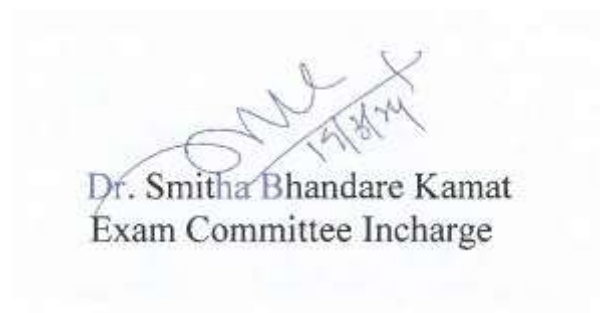 Dr. Smitha Bhandare Kamat
Exam Committee Incharge